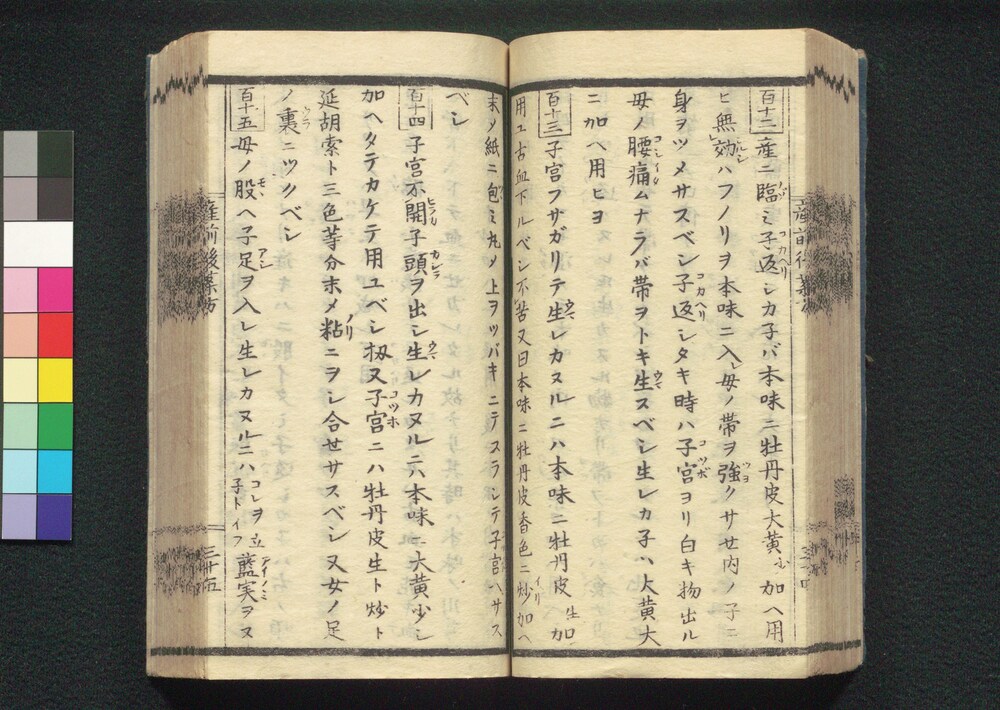 百十二 産ニ臨ミ子返シカ子バ本味ニ牡丹皮大黄少加ヘ用
ヒ無効ハフノリヲ本味ニ入レ母ノ帯ヲ強クサセ内ノ子ニ
身ヲツメサスベシ子返シタキ時ハ子宮ヨリ白キ物出ル
母ノ腰痛ムナラバ帯ヲトキ生スベシ生レカ子ハ大黄大
ニ加ヘ用ヒヨ
百十三 子宮フサガリテ生レカヌルニハ本味ニ牡丹皮生加
用ユ古血下ルベシ不苦又曰本味ニ牡丹皮香色ニ炒加ヘ
末メ紙ニ包ミ丸メ上ヲツバキニテスラシテ子宮ヘサス
ベシ
百十四 子宮不開子頭ヲ出シ生レカヌルニハ本味ニ大黄少シ
加ヘタテカケテ用ユベシ扨又子宮ニハ牡丹皮生ト炒ト
延胡索ト三色等分末メ粘ニヲシ合セサスベシ又女ノ足
ノ裏ニツクベシ
百十五 母ノ股ヘ子足ヲ入レ生レカヌルニハコレヲ立子トイフ藍実ヲヌ
産前後薬方
三十五